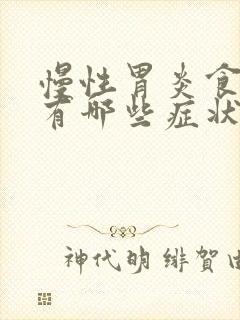 慢性胃炎食
有哪些症状
神代明 绯贺由